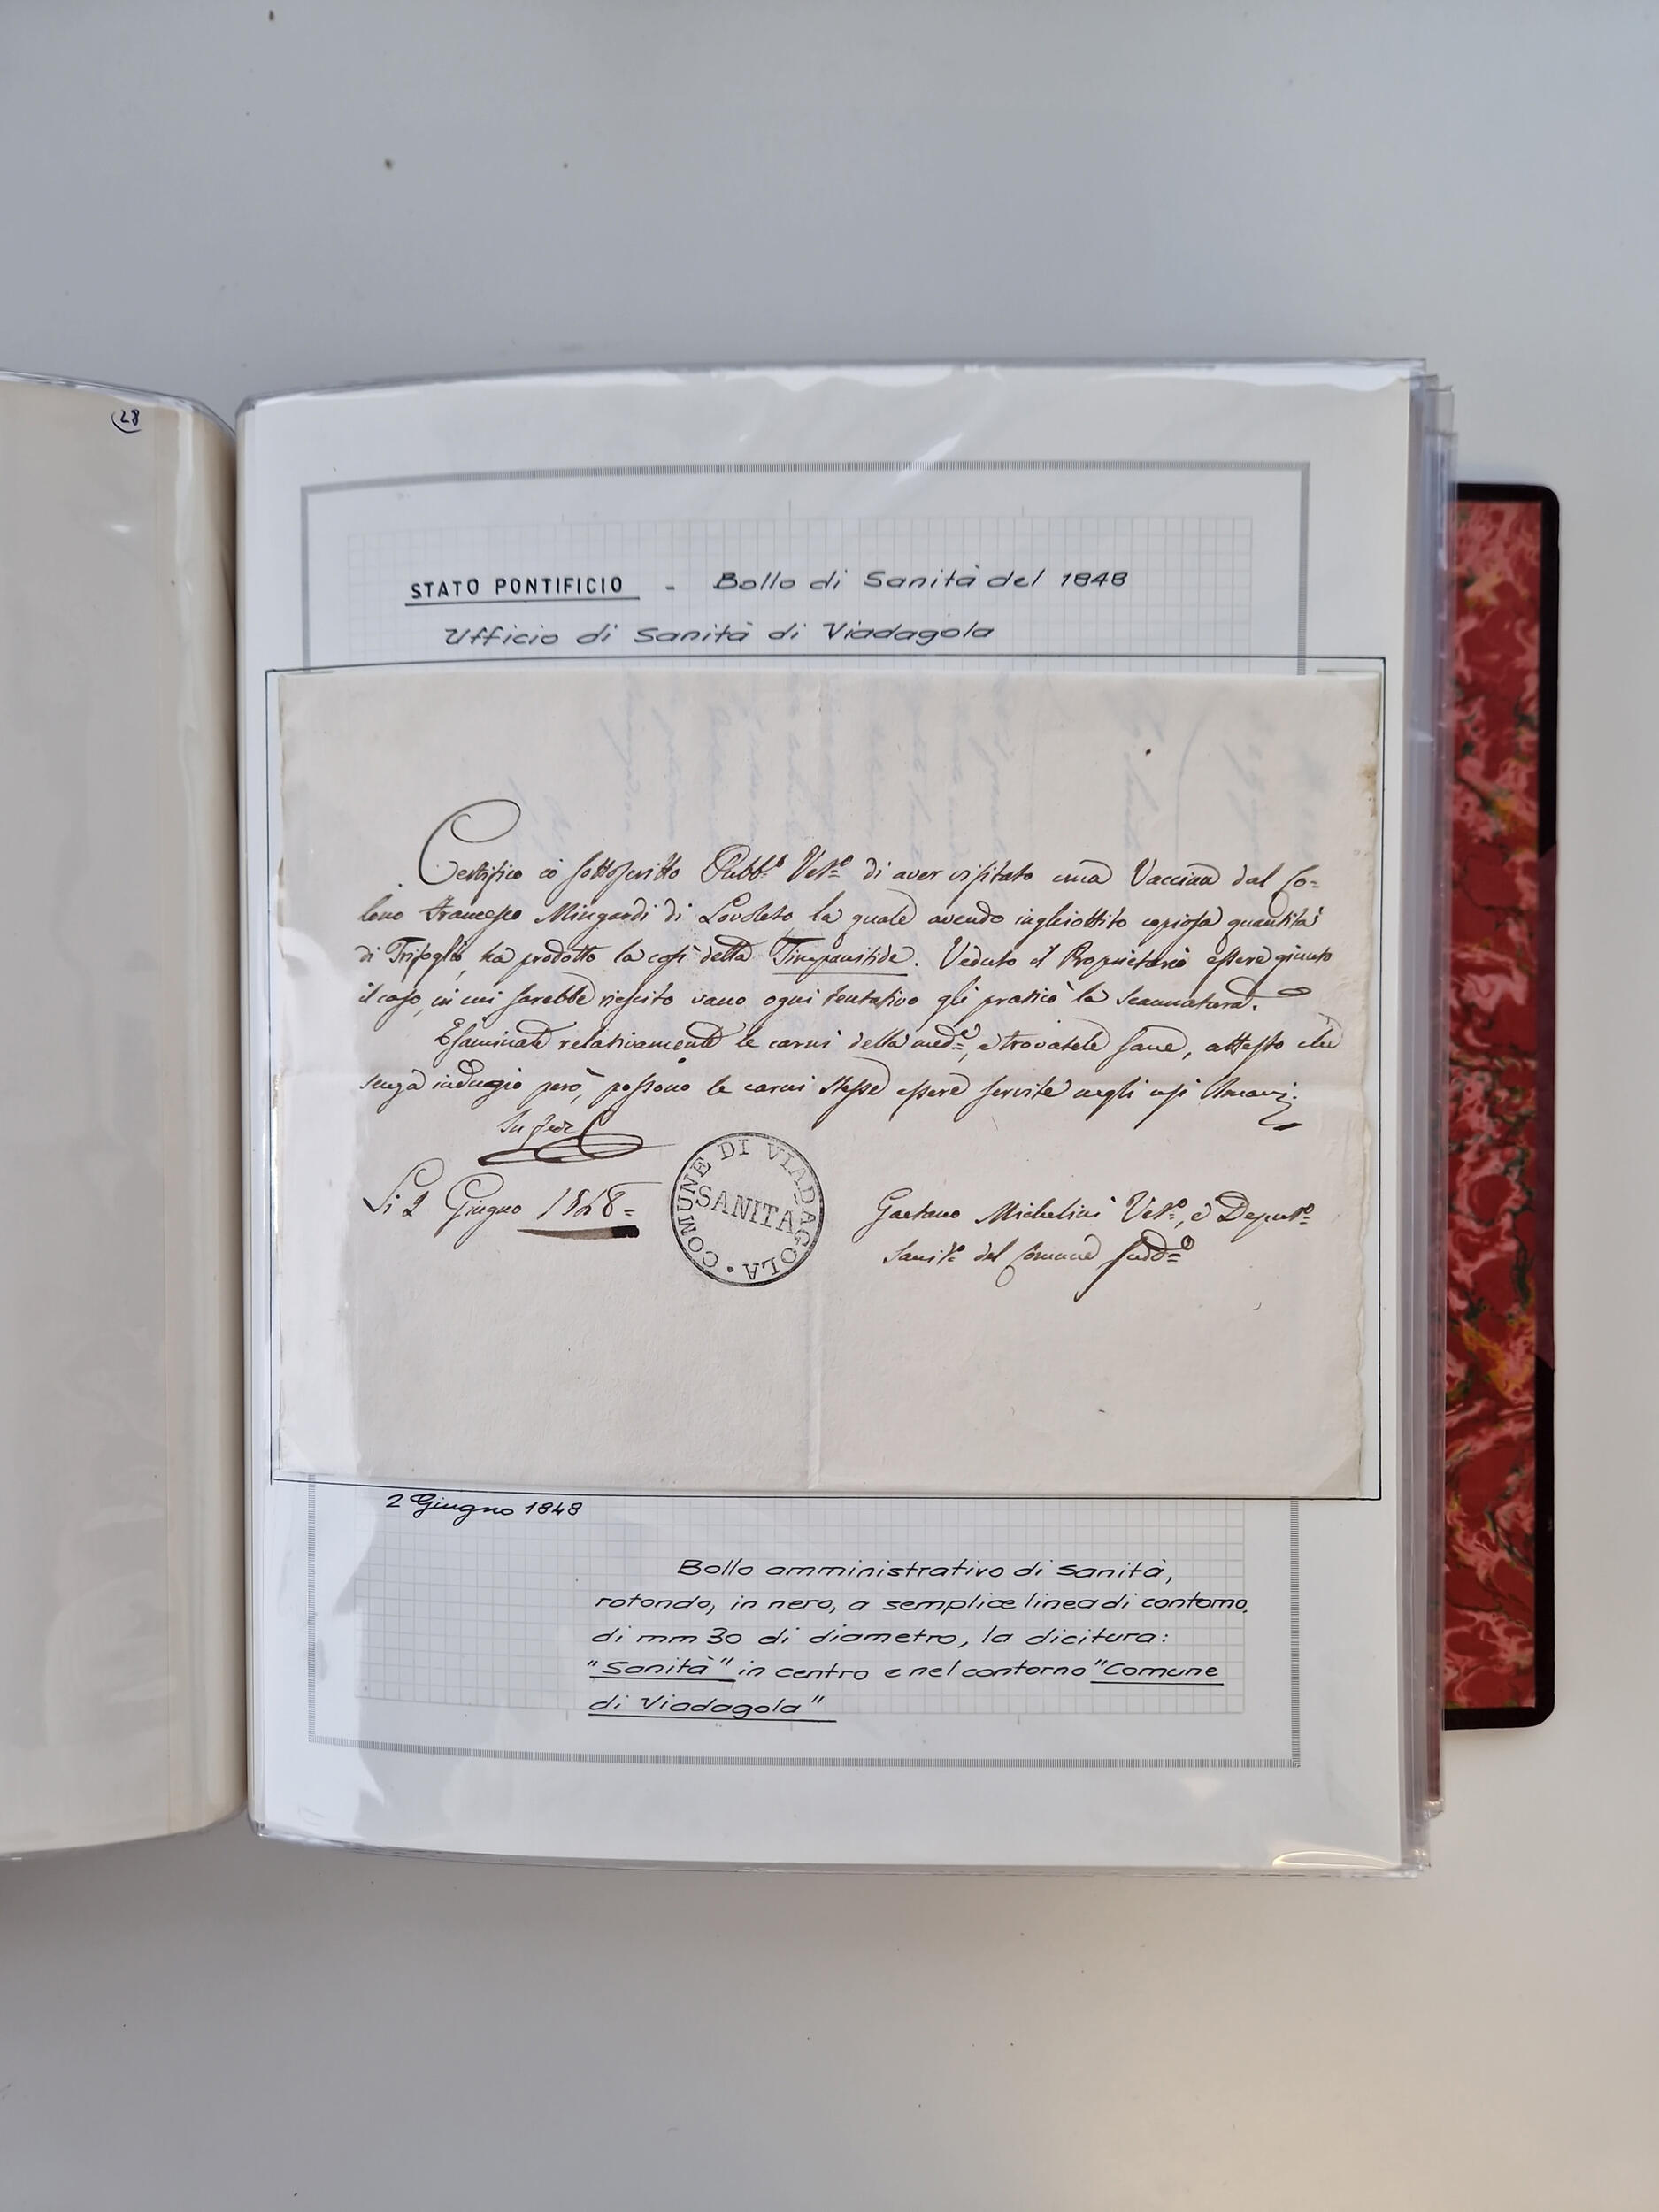 28
STATO PONTIFICIO - Bollo di Sanità del 1848
Ufficio di Sanità di Viadagola
Certifico io sottoscritto Pubb.º Vet.º di aver visitato una Vaccina dal Co=
lono Francesco Mingardi di Lovoleto la quale avendo inghiottito copiosa quantità
di Trifoglio, ha prodotto la così detta Timpanitide. Veduto il Proprietario essere giunto
il caso, in cui sarebbe riescito vano ogni tentativo gli praticò la scannatura.
Esaminate relativamente le carni della med.ª, e trovatele sane, attesto che
senza indugio però, possono le carni stesse essere servite negli usi Umani.
In fede
Li 2 Giugno 1848=
COMUNE DI VIADAGOLA
SANITA
Gaetano Michelini Vet.º, e Deput.º
Sanit.º del Comune sudd.º
2 Giugno 1848
Bollo amministrativo di Sanità,
rotondo, in nero, a semplice linea di contorno,
di mm 30 di diametro, la dicitura:
"Sanità" in centro e nel contorno "Comune
di Viadagola"